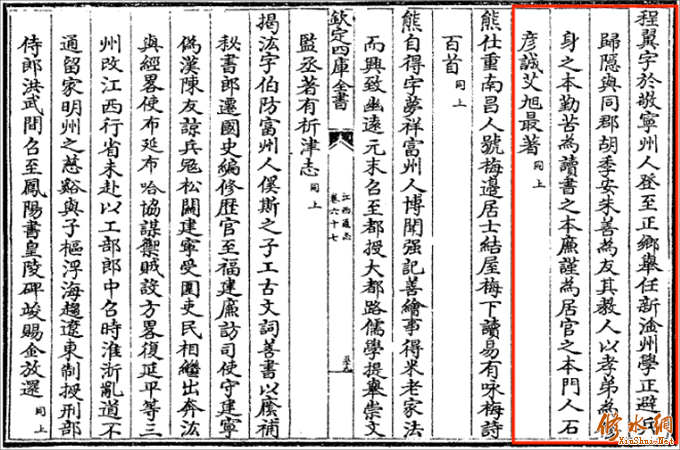 程翼字於敬寧州人登至正鄉舉任新淦州學正避兵
歸隱與同郡胡季安朱善為友其教人以孝弟為
身之本勤苦為讀書之本廉謹為居官之本門人石
彦誠艾旭最著 同上
熊仕重南昌人號梅邊居士結屋梅下讀易有咏梅詩
百首 同上
熊自得字夢祥富州人博聞强記善繪事得米老家法
而興致幽遠元末召至都授大都路儒學提舉崇文
欽定四庫全書
江西通志
卷六十七
監丞著有析津志 同上
揭汯字伯防富州人傒斯之子工古文詞善書以廕補
秘書郎遷國史編修歷官至福建廉訪司使守建寧
偽漢陳友諒兵冦松關建寧受圍吏民相繼出奔汯
與經畧使布延布哈協謀禦賊設方畧復延平等三
州改江西行省未赴以工部郎中召時淮浙亂道不
通留家明州之慈谿與子樞浮海趨遼東制授刑部
侍郎洪武間召至鳳陽書皇陵碑竣賜金放還 同上
修水網
XiuShui.Net